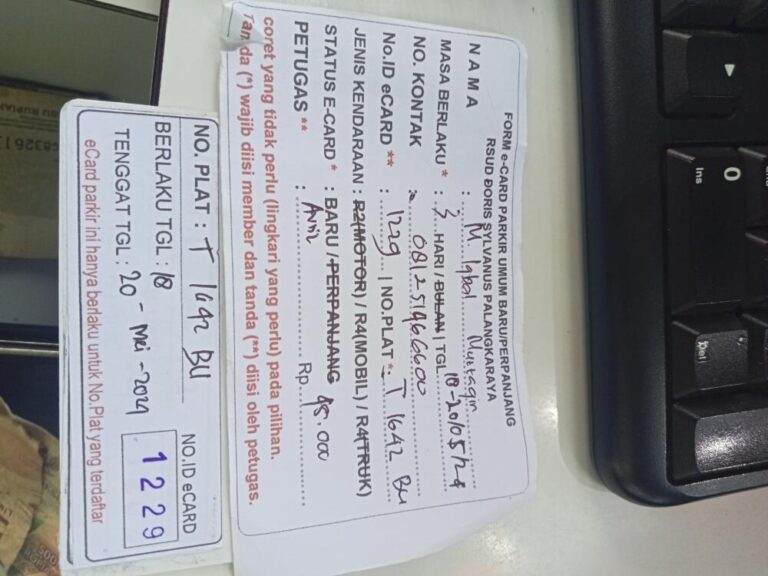 FORM e-CARD PARKIR UMUM BARU/PERPANJANG
RSUD DORIS SYLVANUS PALANGKARAYA
NAMA : M. Iqbal
MASA BERLAKU * : 3 HARI / BULAN | TGL. 18-20/05/24
NO. KONTAK : 081251466600
No.ID eCARD ** : 1229 | NO.PLAT * : T 1642 BU
JENIS KENDARAAN : R2(MOTOR) / R4(MOBIL) / R4(TRUK)
STATUS E-CARD * : BARU / PERPANJANG
PETUGAS ** : Rp. 45.000
coret yang tidak perlu (lingkari yang perlu) pada pilihan.
Tanda (*) wajib diisi member dan tanda (**) diisi oleh petugas.
NO. PLAT : T 1642 BU
BERLAKU TGL : 18
TENGGAT TGL : 20 - Mei - 2024
NO.ID eCARD
1229
eCard parkir ini hanya berlaku untuk No.Plat yang terdaftar
0
Ins
Del